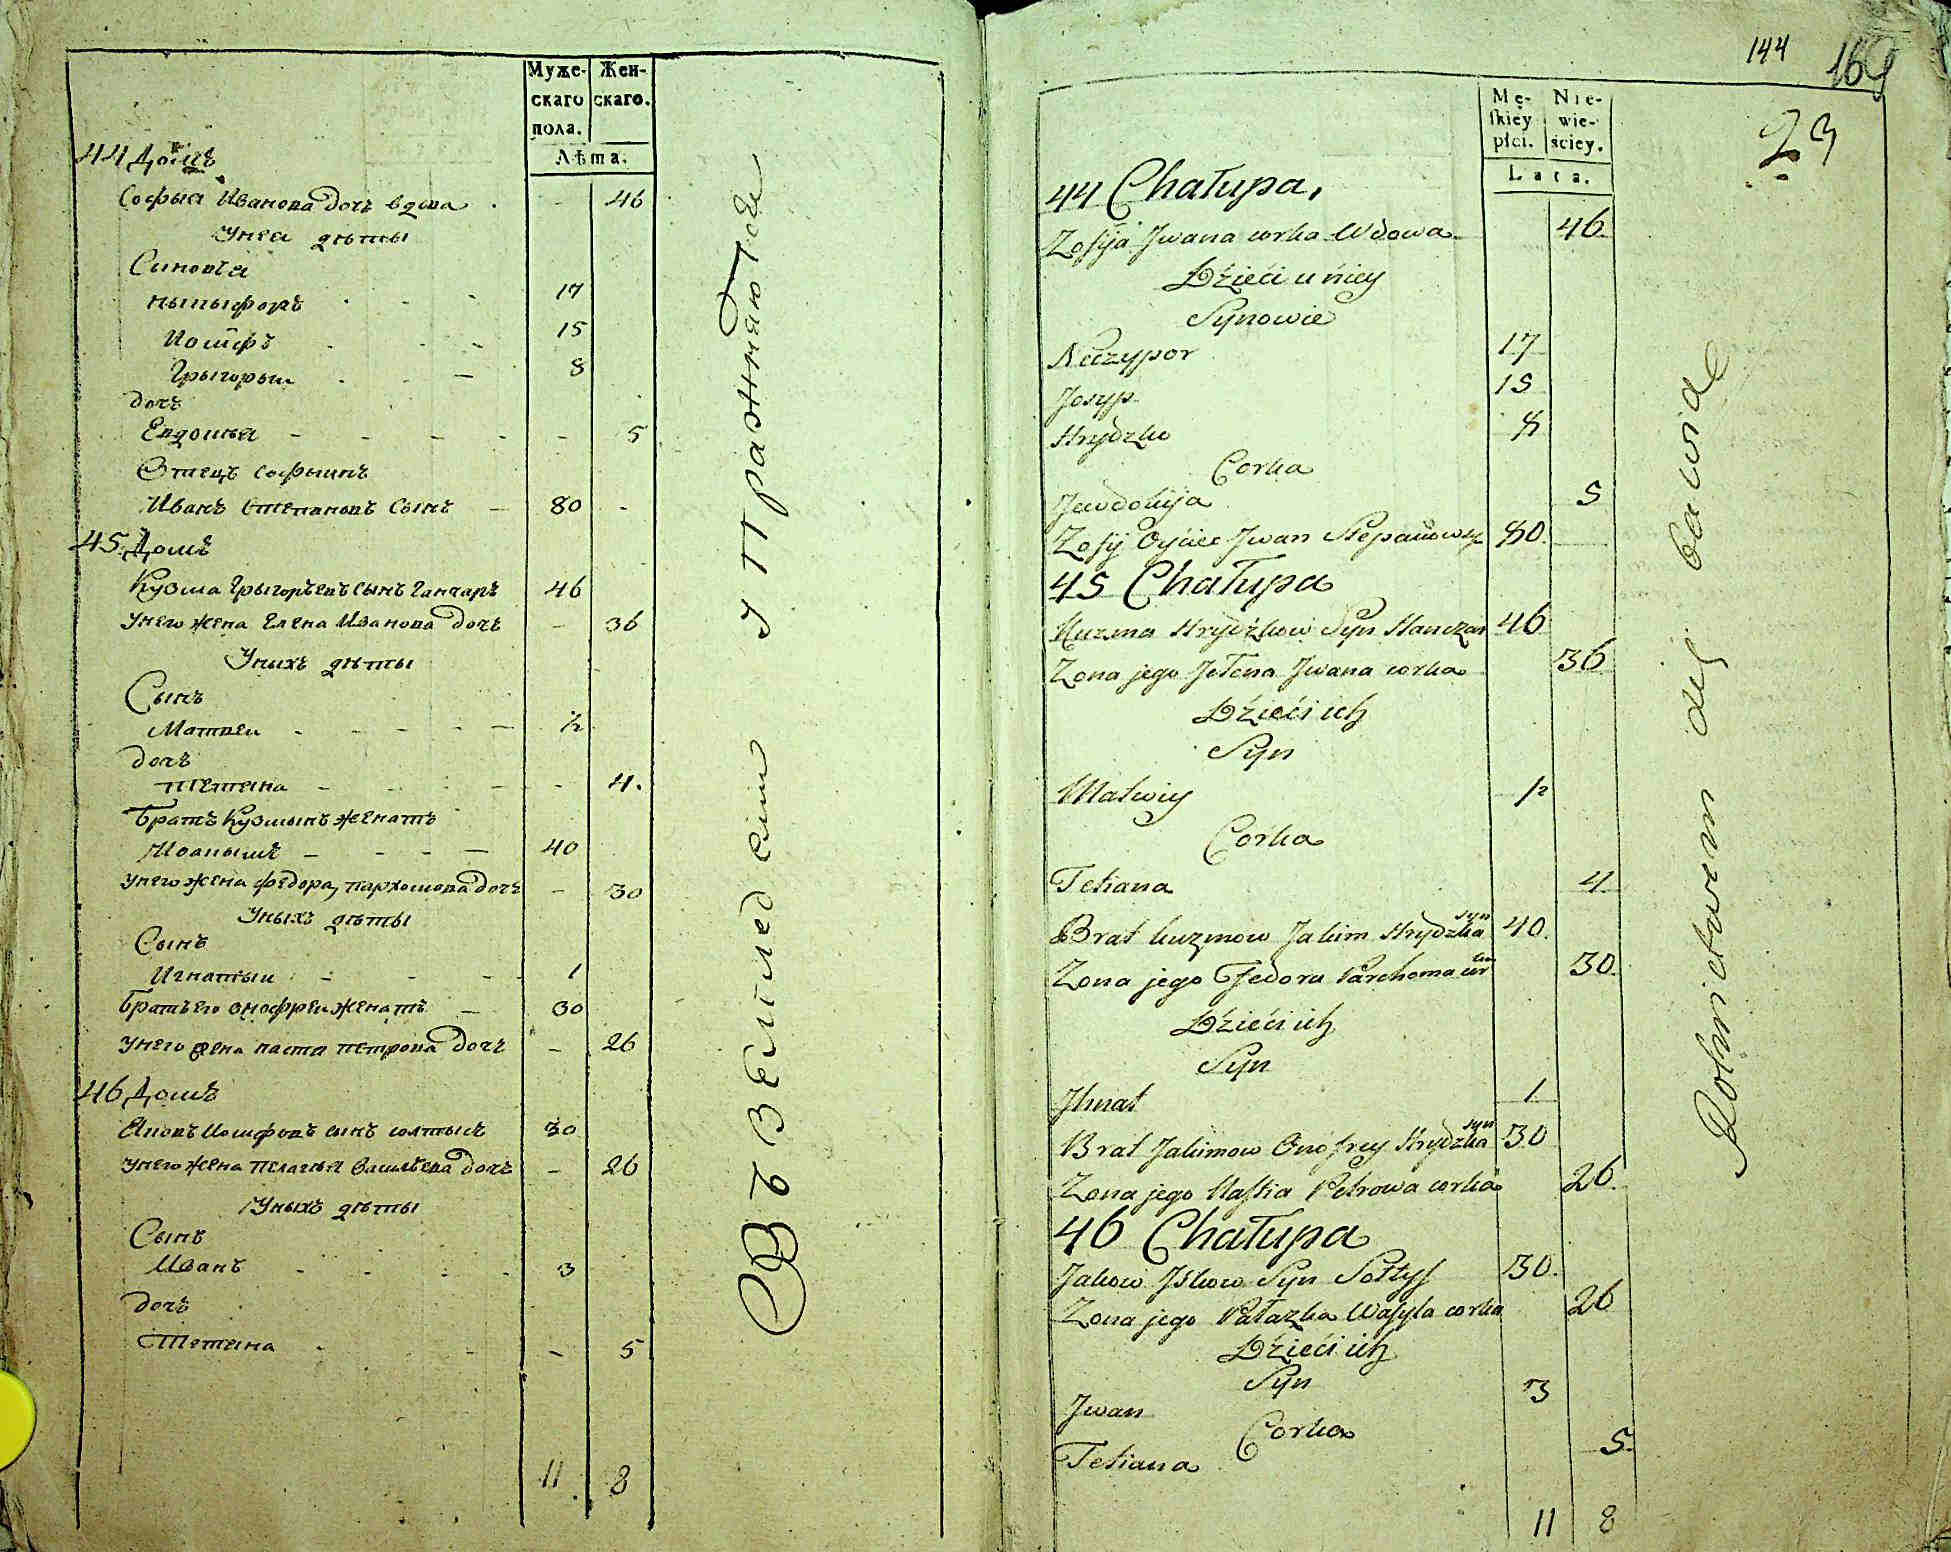 Муже-
скаго
пола.
Жен-
скаго.
Лѣта.
44 Домъ
Софыя Иванова дочъ вдова - 46
Унея дѣты
Сыновѣя
Ныпыфоръ 17
Иосифъ 15
Грыгорыи 8
дочъ
Евдокия - 5
Отецъ софыинъ
Иванъ Степановъ Сынъ 80 -
45 Домъ
Кузма Грыгорьевъ Сынъ Ганчаръ 46
Унего жена Елена Иванова дочъ - 36
Уныхъ дѣты
Сынъ
Матвеи ½
дочъ
Тетяна - 4.
Братъ Кузмынъ женатъ
40
Унего жена Федора, пархомова дочъ - 30
Уныхъ дѣты
Сынъ
Игнатыи 1
Братъ его Онофреи женатъ 30
Унего жена настя петрова дочъ - 26
46 Домъ
Яковъ Иосифовъ сынъ солтысъ 30
Унего жена пелагия Васильева дочъ - 26
Уныхъ дѣты
Сынъ
Иванъ 3
дочъ
Тетяна - 5
11 8
Въ Земледелии упражняются
144 169
23
Mę-
ſkiey
płci.
Nie-
wie-
ściey.
Lata.
44 Chałupa,
Zofija Jwana corka Wdowa 46
Dzieci u niey
Synowie
Niczypor 17
Josyp 15
Hrydzko 8
Corka
Jewdokija 5
Zofij Oyciec Jwan Stepanow Syn 80.
45 Chałupa
Kuzma Hrydzkow Syn Hanczar 46
Zona jego Jełena Jwana corka 36
Dzieci ich
Syn
Matwiy ½
Corka
Tetiana 4
Brat kuzmow Jakim Hrydzka syn 40.
Zona jego Fjedora Parchoma cor 30.
Dzieci ich
Syn
Jhnat 1
Brat Jakimow Onofrey Hrydzka syn 30
Zona jego Nastia Petrowa corka 26.
46 Chałupa
Jakow Jśkow Syn Sołtys 30.
Zona jego Pałazka Wasyla corka 26
Dzieci ich
Syn
Jwan 3
Corka
Tetiana 5.
11 8
Rolnictwem się bawią